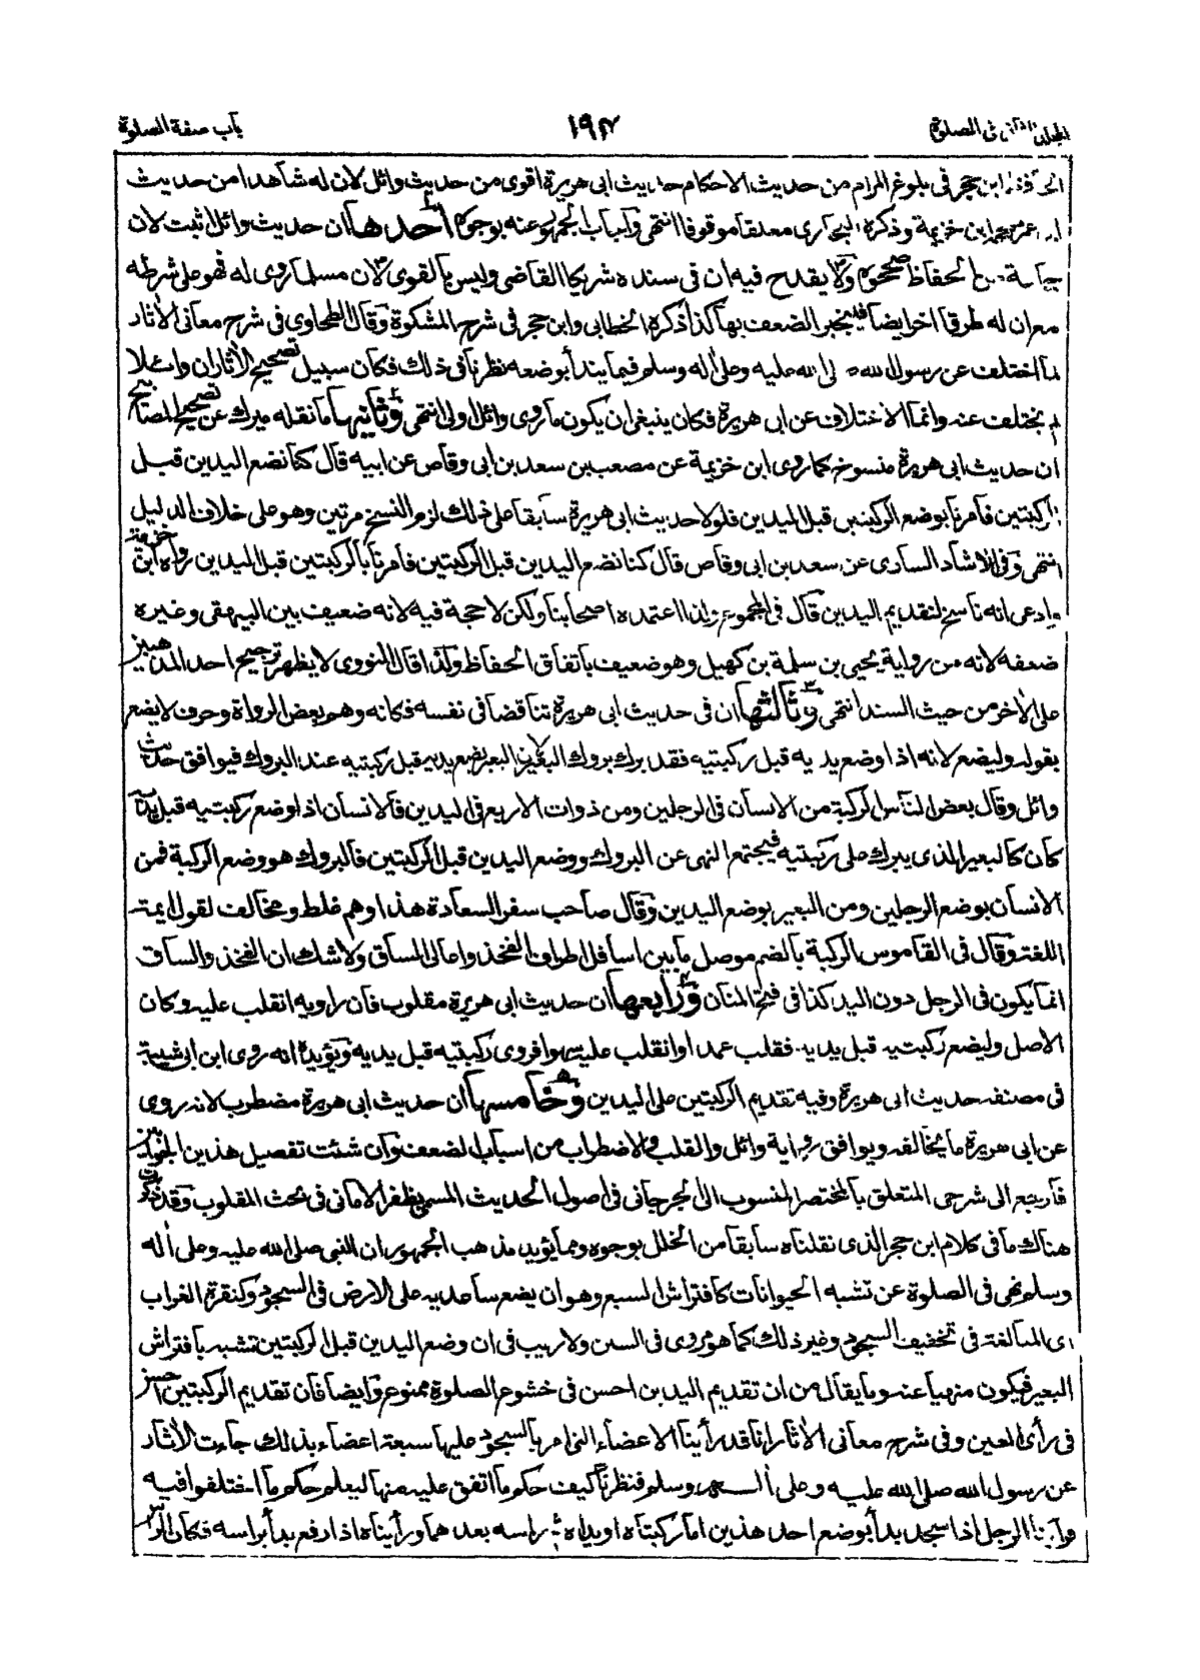 المجلد الثاني في الصلوة
١٩٣
باب صفة الصلوة
الحافظ ابن حجر في بلوغ المرام من حديث الاحكام حديث ابى هريرة اقوى من حديث وائل لان له شاهدا من حديث
ابن عمر صححه ابن خزيمة وذكره البخارى معلقا موقوفا انتهى وأجاب الجمهور عنه بوجوه احدها ان حديث وائل اثبت لان
جماعة من الحفاظ صححوه ولا يقدح فيه ان فى سنده شريكا القاضى وليس بالقوى لان مسلما روى له فهو على شرطه
مع ان له طرقا اخر ايضا فينجبر الضعف بها كذا ذكره الخطابى وابن حجر فى شرح المشكوة وقال الطحاوى فى شرح معانى الأثار
لما اختلف عن رسول الله صلى الله عليه وعلى أله وسلم فيما يبدأ بوضعه نظرنا فى ذلك فكان سبيل تصحيح الأثار ان وائلا
لم يختلف عنه وانما الاختلاف عن ابى هريرة فكان ينبغى ان يكون ما روى وائل اولى انتهى وثانيها ما نقله ميرك عن تصحيح المصابيح
ان حديث ابى هريرة منسوخ كما روى ابن خزيمة عن مصعب بن سعد بن ابى وقاص عن ابيه قال كنا نضع اليدين قبل
الركبتين فأمرنا بوضع الركبتين قبل اليدين فلولا حديث ابى هريرة سابقا على ذلك لزم النسخ مرتين وهو على خلاف الدليل
انتهى وفى الارشاد السارى عن سعد بن ابى وقاص قال كنا نضع اليدين قبل الركبتين فأمرنا بالركبتين قبل اليدين رواه ابن خزيمة
وادعى انه ناسخ لتقديم اليدين قال فى المجموع ولذا اعتمده اصحابنا ولكن لا حجة فيه لانه ضعيف بين البيهقى وغيره
ضعفه لانه من رواية يحيى بن سلمة بن كهيل وهو ضعيف باتفاق الحفاظ ولذا قال النووى لا يظهر ترجيح احد المذهبين
على الأخر من حيث السند انتهى وثالثها ان فى حديث ابى هريرة تناقضا فى نفسه فكانه وهم بعض الرواة وحرف لا يضع
بقوله وليضع لانه اذا وضع يديه قبل ركبتيه فقد برك بروك البعير لان البعير يضع يديه قبل ركبتيه عند البروك فيوافق حديث
وائل وقال بعض الناس الركبة من الانسان فى الرجلين ومن ذوات الاربع فى اليدين فالانسان اذا وضع ركبتيه قبل يديه
كان كالبعير الذى يبرك على ركبتيه فيجتمع النهى عن البروك ووضع اليدين قبل الركبتين فالبروك هو وضع الركبة فمن
الانسان بوضع الرجلين ومن البعير بوضع اليدين وقال صاحب سفر السعادة هذا وهم غلط ومخالف لقول ايمة
اللغة وقال فى القاموس الركبة بالضم موصل ما بين اسافل اطراف الفخذ واعالى الساق ولا شك ان الفخذ والساق
انما يكون فى الرجل دون اليد كذا فى فتح المنان ورابعها ان حديث ابى هريرة مقلوب فان راويه انقلب عليه وكان
الاصل وليضع ركبتيه قبل يديه فقلب عمدا او انقلب عليه سهوا فروى ركبتيه قبل يديه ويؤيده انه روى ابن ابى شيبة
فى مصنفه حديث ابى هريرة وفيه تقديم الركبتين على اليدين وخامسها ان حديث ابى هريرة مضطرب لانه روى
عن ابى هريرة ما يخالفه ويوافق رواية وائل والقلب والاضطراب من اسباب الضعف وان شئت تفصيل هذين الجوابين
فارجع الى شرحى المتعلق بالمختصر المنسوب الى الجرجانى فى اصول الحديث المسمى بظفر الامانى فى بحث المقلوب وقد ذكرت
هناك ما فى كلام ابن حجر الذى نقلناه سابقا من الخلل بوجوه ومما يؤيد مذهب الجمهور ان النبى صلى الله عليه وعلى أله
وسلم نهى فى الصلوة عن تشبه الحيوانات كافتراش السبع وهو ان يضع ساعديه على الارض فى السجود وكنقرة الغراب
اى المبالغة فى تخفيف السجود وغير ذلك كما هو مروى فى السنن ولا ريب فى ان وضع اليدين قبل الركبتين تشبه بافتراش
البعير فيكون منهيا عنه وما يقال من ان تقديم اليدين احسن فى خشوع الصلوة ممنوع وايضا فان تقديم الركبتين احسن
فى رأى العين وفى شرح معانى الأثار انا قد رأينا الاعضاء التى امر بالسجود عليها سبعة اعضاء بذلك جاءت الأثار
عن رسول الله صلى الله عليه وعلى أله وسلم فنظرنا كيف حكم ما اتفق عليه منها ليعلم حكم ما اختلفوا فيه
فرأينا الرجل اذا سجد بدأ بوضع احد هذين اما ركبتاه او يداه ثم راسه بعدهما ورأيناه اذا رفع بدأ براسه فكان الراس